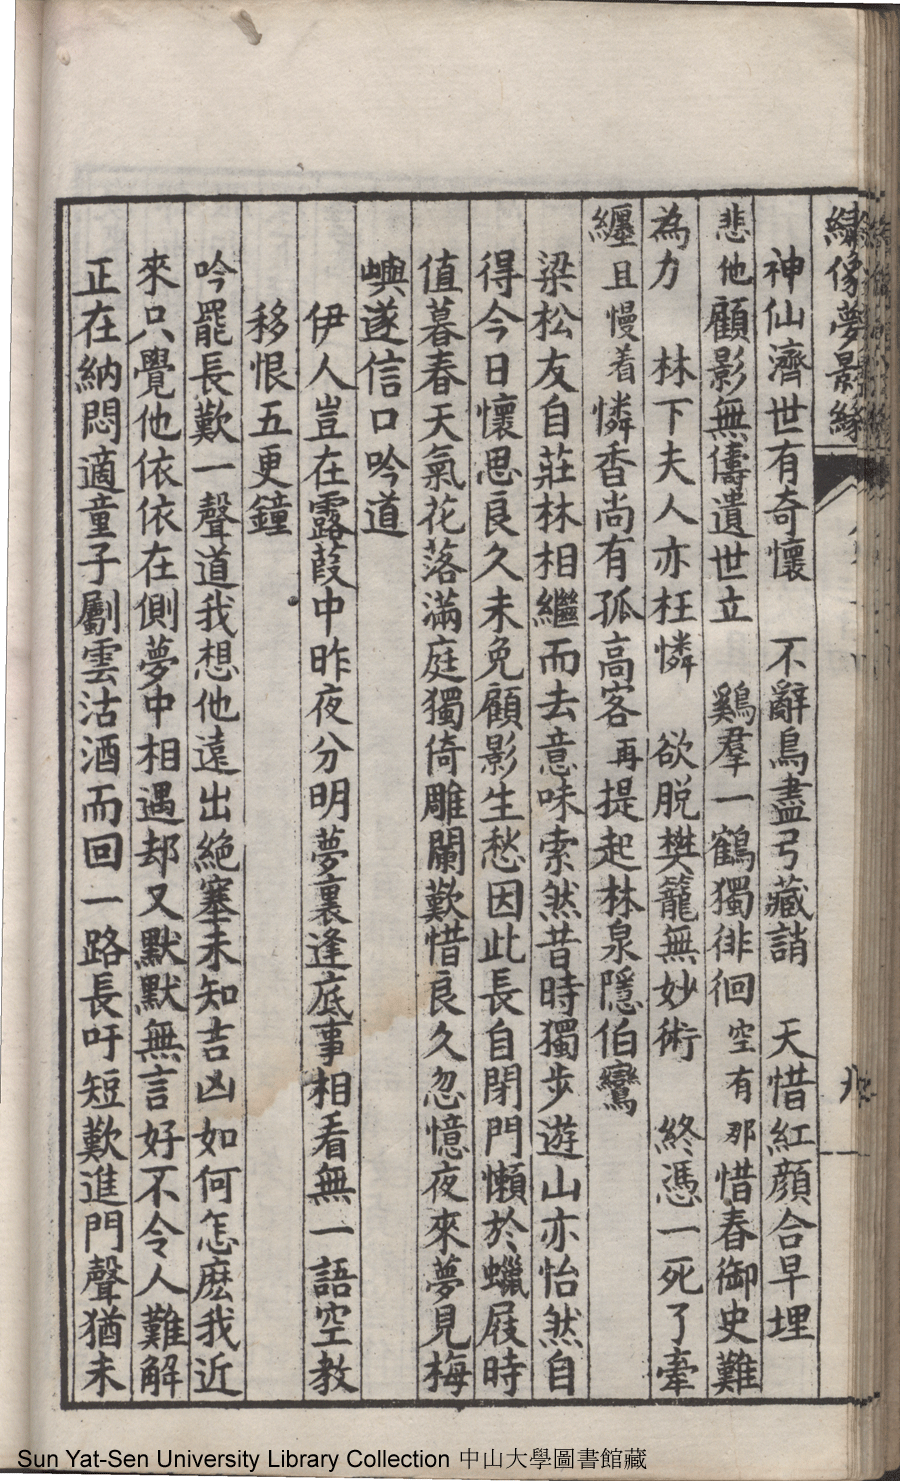 繡像夢影緣
神仙濟世有奇懷　不辭鳥盡弓藏誚　天惜紅顏合早埋
悲他顧影無儔遺世立　鷄羣一鶴獨徘徊空有那惜春御史難
為力　林下夫人亦枉憐　欲脫樊籠無妙術　終憑一死了牽
纏且慢着憐香尚有孤高客再提起林泉隱伯鸞
梁松友自莊林相繼而去意味索然昔時獨步遊山亦怡然自
得今日懷思良久未免顧影生愁因此長自閉門懶於蠟屐時
值暮春天氣花落滿庭獨倚雕闌歎惜良久忽憶夜來夢見梅
嶼遂信口吟道
伊人豈在露葭中昨夜分明夢裏逢底事相看無一語空教
移恨五更鐘
吟罷長歎一聲道我想他遠出絕塞未知吉凶如何怎麽我近
來只覺他依依在側夢中相遇却又默默無言好不令人難解
正在納悶適童子劚雲沽酒而回一路長吁短歎進門聲猶未
Sun Yat-Sen University Library Collection 中山大學圖書館藏